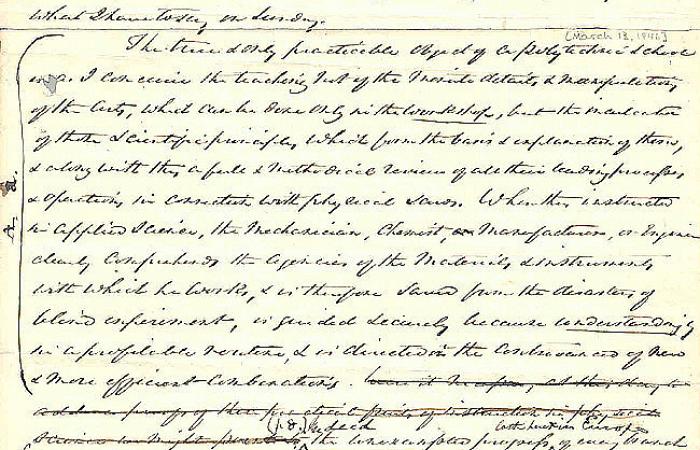 what I have to say on Sunday.
[March 13, 1846]
The true & only practicable object of a polytechnic school
is as I conceive the teaching not of the minute details & manipulations
of the Arts, which can be done only in the workshop, but the inculcation
of those scientific principles which form the basis & explanation of them,
& along with this a full & methodical review of all their leading processes
& operations in connection with physical laws. When thus instructed
in applied science, the Mechanician, Chemist, Manufacturer, or Engineer
clearly comprehends the agencies of the Materials & instruments
with which he works, & is therefore saved from the disasters of
blind experiment, is guided securely because understandingly
in a profitable routine, & is directed in the contrivance of new
& more efficient combinations. were it at this day to
proofs of the practical fruits of instruction in physical
both here & in Europe
Indeed
Science the unexampled progress of every branch